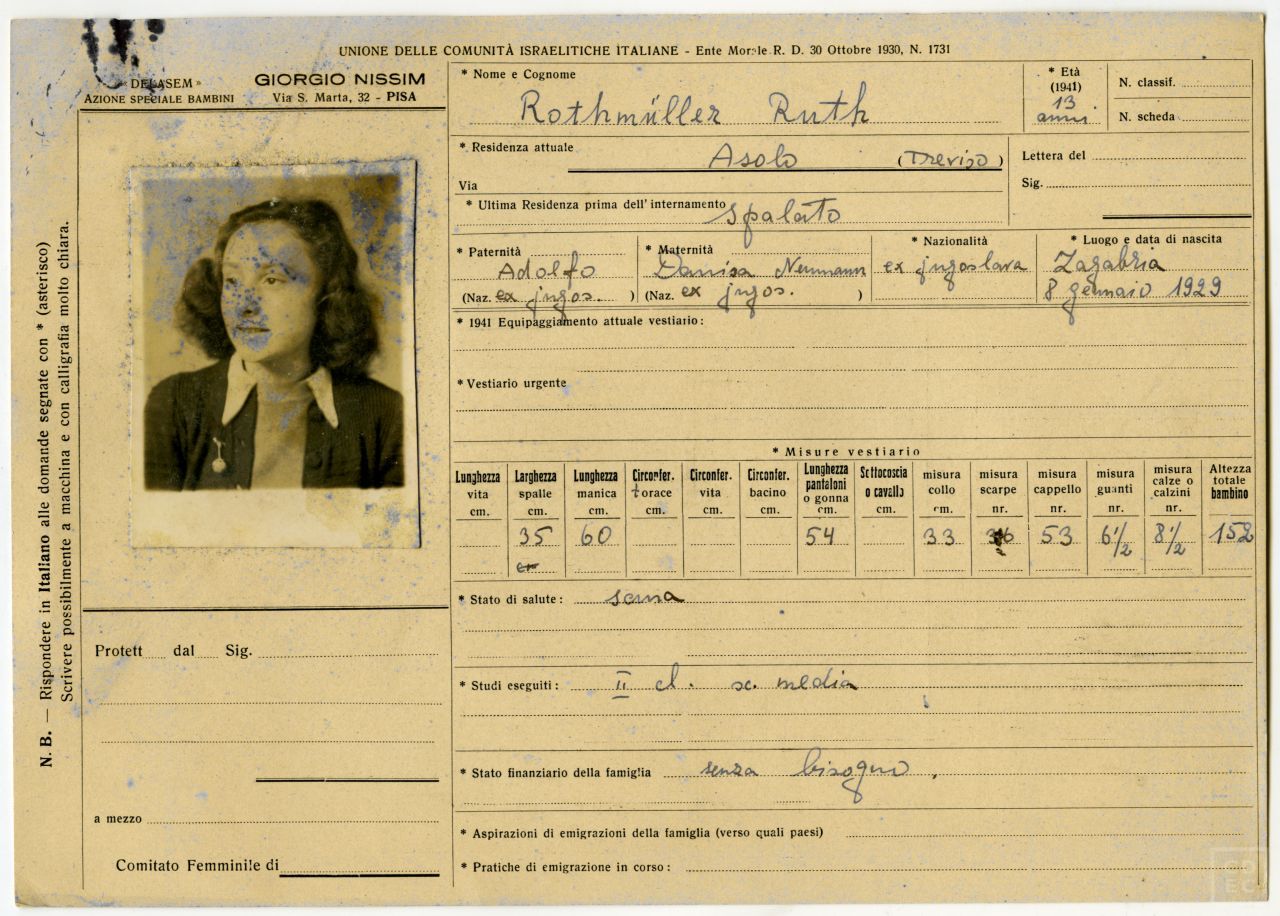 UNIONE DELLE COMUNITÀ ISRAELITICHE ITALIANE - Ente Morale R. D. 30 Ottobre 1930, N. 1731
« DELASEM »
AZIONE SPECIALE BAMBINI
GIORGIO NISSIM
Via S. Marta, 32 - PISA
N. B. — Rispondere in Italiano alle domande segnate con * (asterisco)
Scrivere possibilmente a macchina e con calligrafia molto chiara.
* Nome e Cognome
Rothmüller Ruth
* Età
(1941)
13
anni
N. classif.
N. scheda
* Residenza attuale
Asolo (Treviso)
Via
Lettera del
Sig.
* Ultima Residenza prima dell'internamento Spalato
* Paternità
Adolfo
(Naz. ex jugos. )
* Maternità
Danisa Neumann
(Naz. ex jugos. )
* Nazionalità
ex jugoslava
* Luogo e data di nascita
Zagabria
8 gennaio 1929
* 1941 Equipaggiamento attuale vestiario:
* Vestiario urgente
* Misure vestiario
Lunghezza vita cm.
Larghezza spalle cm. 35
Lunghezza manica cm. 60
Circonfer. torace cm.
Circonfer. vita cm.
Circonfer. bacino cm.
Lunghezza pantaloni o gonna cm. 54
Sottocoscia o cavallo cm.
misura collo cm. 33
misura scarpe nr. 36
misura cappello nr. 53
misura guanti nr. 6 1/2
misura calze o calzini nr. 8 1/2
Altezza totale bambino 152
* Stato di salute: sana
* Studi eseguiti: II cl. sc. media
* Stato finanziario della famiglia senza bisogno
* Aspirazioni di emigrazioni della famiglia (verso quali paesi)
* Pratiche di emigrazione in corso:
Protett dal Sig.
a mezzo
Comitato Femminile di
CDEC